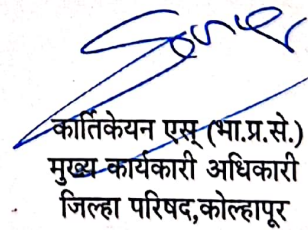 कार्तिकेयन एस् (भा.प्र.से.)
मुख्य कार्यकारी अधिकारी
जिल्हा परिषद,कोल्हापूर